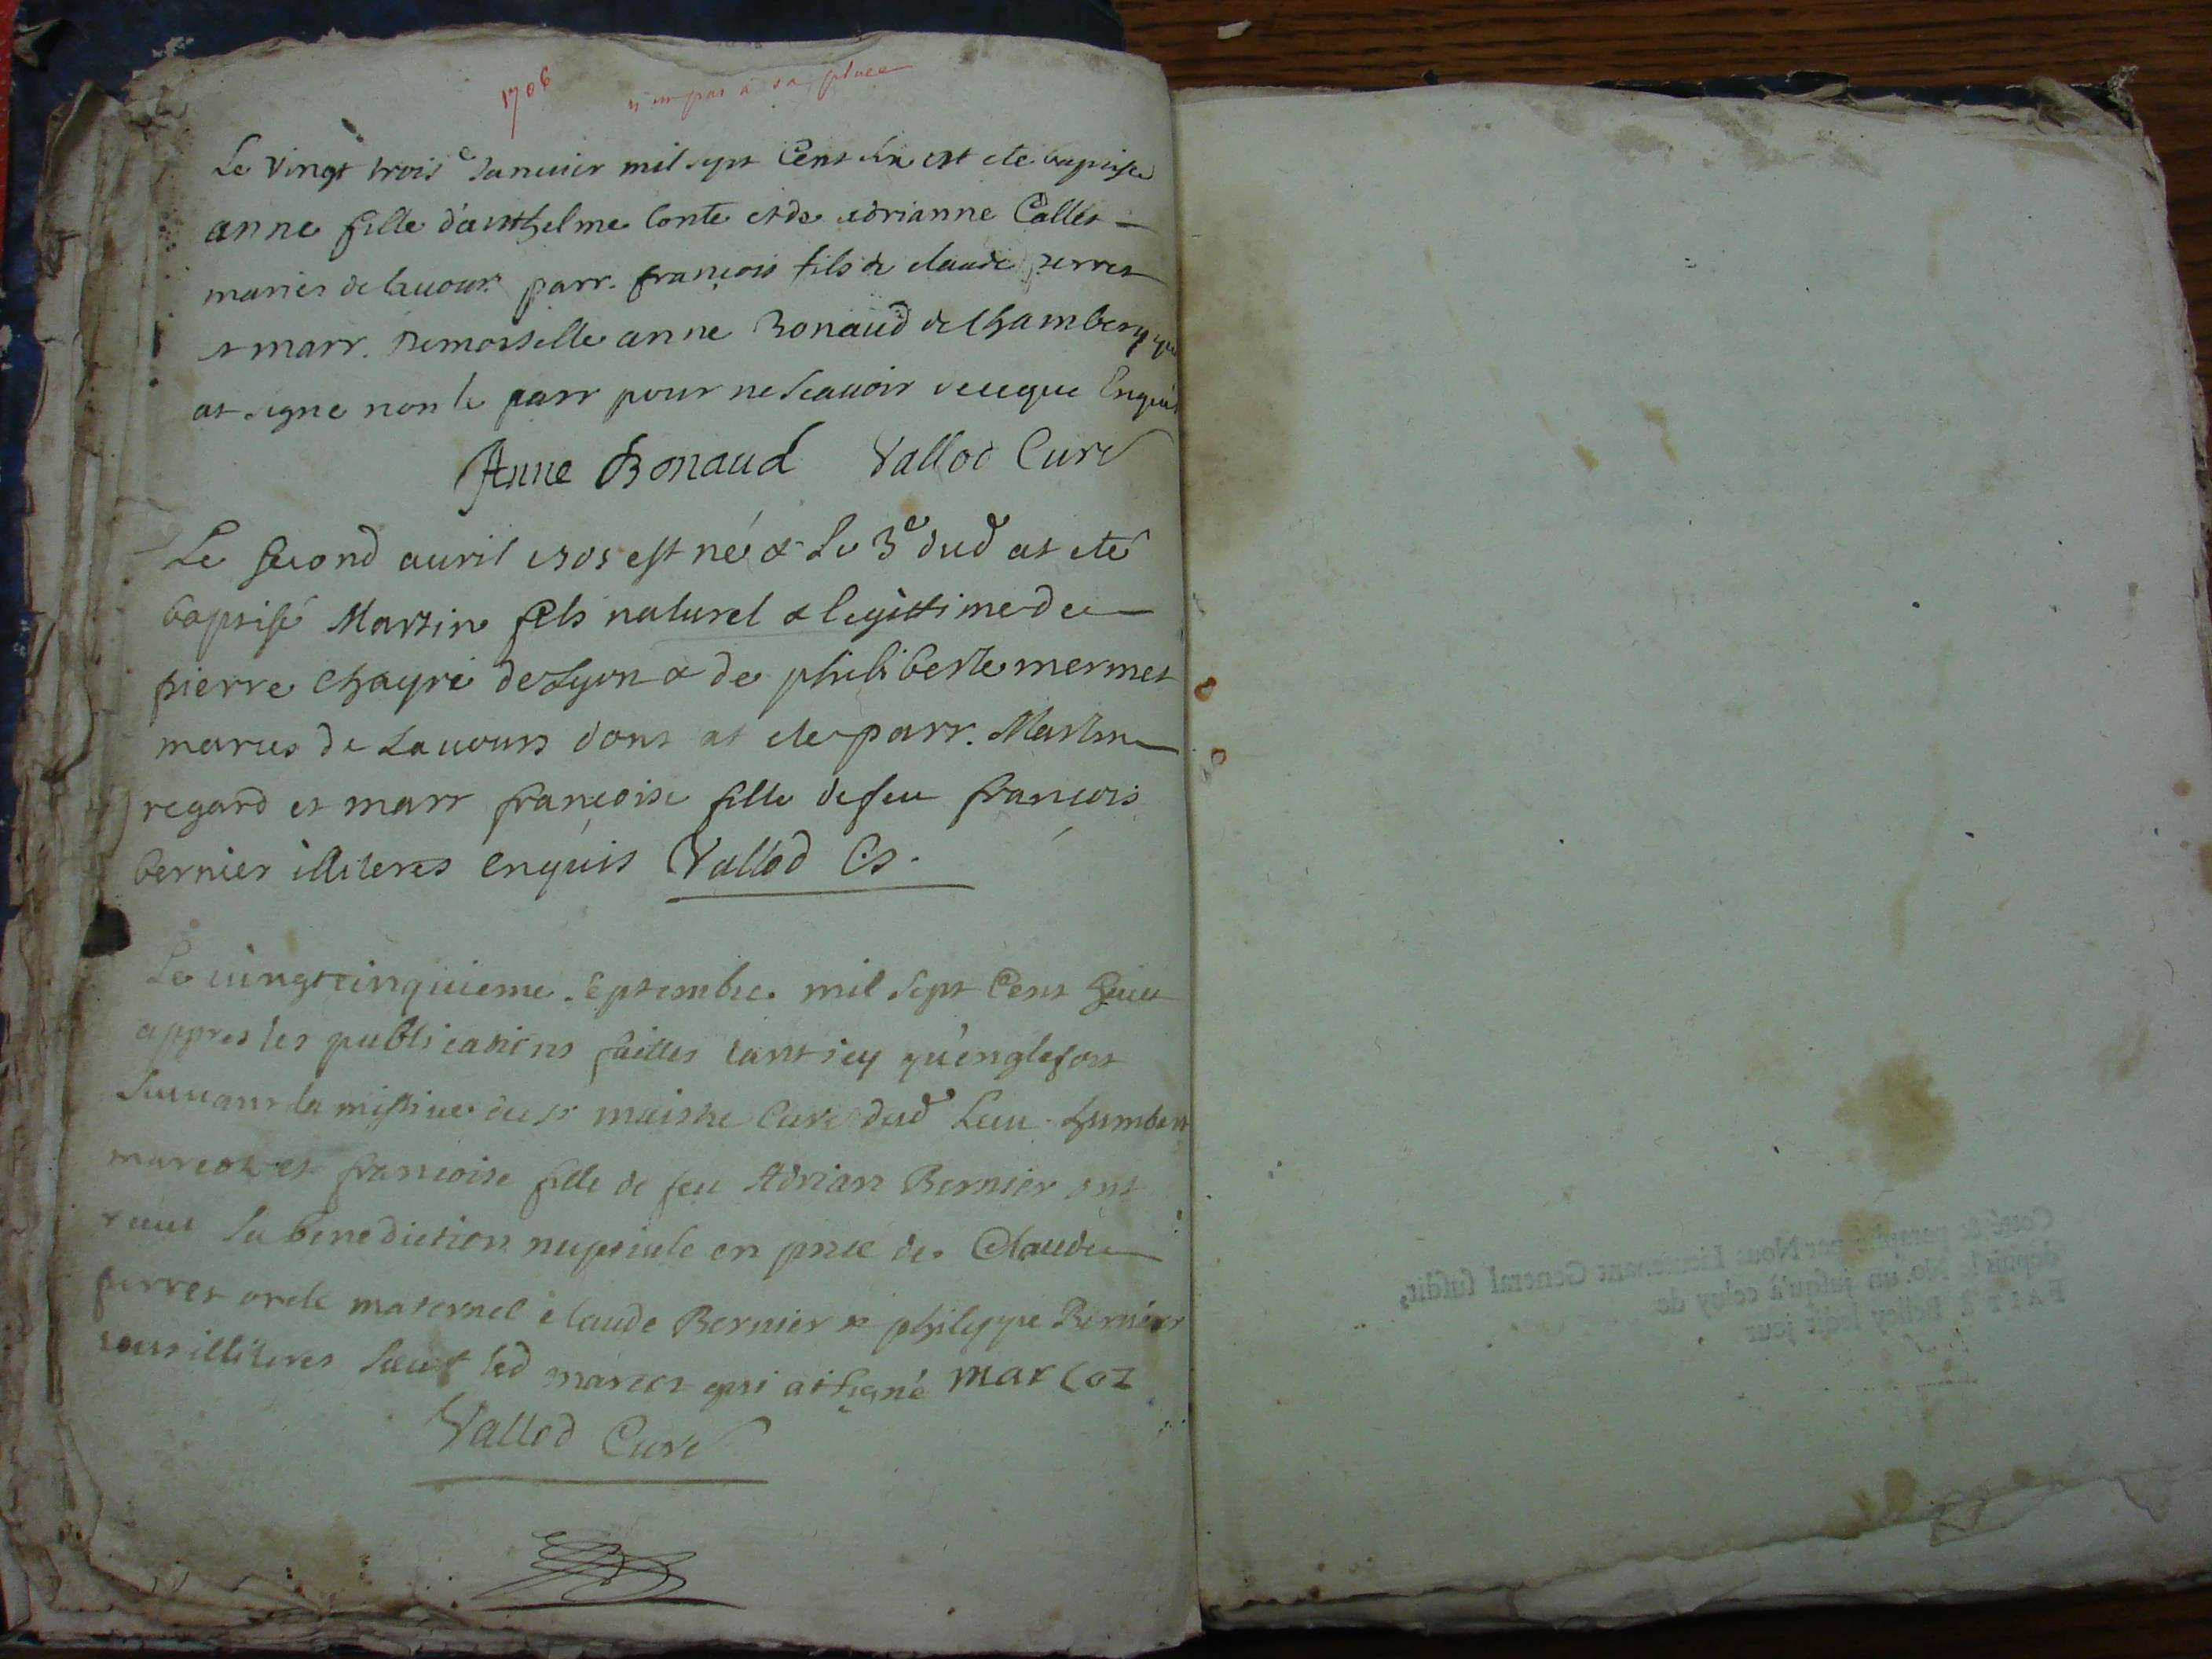 1706 n'est pas à sa place
Le vingt trois e Januier mil sept Cent six est ete baptisée
anne fille d'anthelme Conte et de adrianne Callet
mariés de lauours parr. françois fils de claude perret
et marr. Demoiselle anne Bonaud de Chambery qui
at signe non le parr pour ne scauoir de ce que Enquis
Anne Bonaud Vallod Curé
Le second auril 1705 est né & le 3e dud at eté
baptisé Martin fils naturel & legittime de
pierre Chayre de Lyon & de philiberte mermet
maries de Lauours dont at ete parr. Martin
regard et marr françoise fille de feu françois
bernier illiteres enquis Vallod Cs.
Le uingtcinquieme septembre mil sept Cent huict
appres les publications faittes tant icy qu'englefort
suiuant la missiue du sr maistre Curé dud Lieu humbert
marcoz et francoise fille de feu Adrian Bernier ont
receu la benediction nuptiale en pnce de Claude
perret oncle maternel claude Bernier & philippe Bernier
tous illiteres sauf led marcoz qui at signé marcoz
Vallod Curé
Cotté & paraphé par Nous Lieutenant General susdit,
depuis le No. un jusqu'à celuy de
FAIT à Belley ledit jour